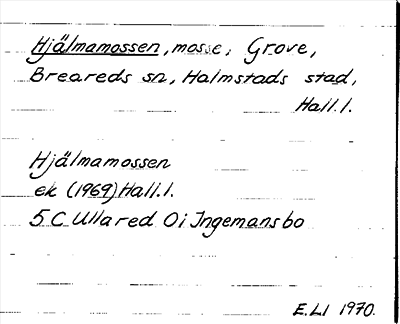 Hjälmamossen, mosse, Grove,
Breareds sn, Halmstads stad,
Hall.l.
Hjälmamossen
ek (1969) Hall.l.
5 C Ullared 0 i Ingemansbo
E.LI 1970.